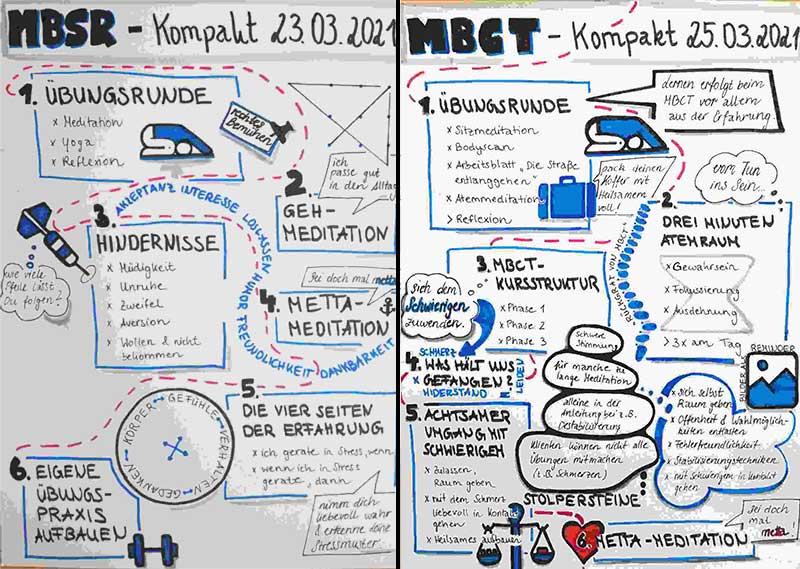 MBSR - Kompakt 23.03.2021
1. ÜBUNGSRUNDE
x Meditation
x Yoga
x Reflexion
rechtes
Bemühen
ich
passe gut
in den Alltag
2.
GEH-
MEDITATION
AKZEPTANZ INTERESSE LOSLASSEN HUMOR FREUNDLICHKEIT DANKBARKEIT
3.
HINDERNISSE
x Müdigkeit
x Unruhe
x Zweifel
x Aversion
x Wollen & nicht
bekommen
wie viele
Pfeile lässt
Du folgen?
Sei doch mal metta
4. METTA-
MEDITATION
KÖRPER GEFÜHLE VERHALTEN GEDANKEN
5.
DIE VIER SEITEN
DER ERFAHRUNG
x ich gerate in Stress, wenn
x wenn ich in Stress
gerate, dann
nimm dich
liebevoll wahr
& erkenne deine
Stressmuster
6. EIGENE
ÜBUNGS-
PRAXIS
AUFBAUEN
MBCT - Kompakt 25.03.2021
1. ÜBUNGSRUNDE
x Sitzmeditation
x Bodyscan
x Arbeitsblatt „Die Straße
entlanggehen"
x Atemmeditation
> Reflexion
lernen erfolgt beim
MBCT vor allem
aus der Erfahrung.
pack deinen
Koffer mit
Heilsamem
voll!
vom Tun
ins Sein...
2.
DREI MINUTEN
ATEMRAUM
x Gewahrsein
x Fokussierung
x Ausdehnung
> 3x am Tag
"RÜCKGRAT VON MBCT"
3. MBCT-
KURSSTRUKTUR
x Phase 1
x Phase 2
x Phase 3
sich dem
Schwierigen
zuwenden.
SCHMERZ
4. WAS HÄLT UNS
GEFANGEN?
x WIDERSTAND
LEIDEN
5. ACHTSAMER
UMGANG MIT
SCHWIERIGEM
x zulassen,
Raum geben
x mit dem Schmerz
liebevoll in Kontakt
gehen
x Heilsames aufbauen
Schwere
Stimmung
für manche zu
lange Meditation
alleine in der
Anleitung bei z.B.
Destabilisierung
Klienten können nicht alle
Übungen mitmachen
(z.B. Schmerzen)
STOLPERSTEINE
REMINDER
BILDER ALS
x sich selbst
Raum geben
x Offenheit & Wahlmöglich-
keiten entfalten
x Fehlerfreundlichkeit
x Stabilisierungstechniken
x mit Schwierigem in Kontakt
gehen
6. METTA-MEDITATION
Sei doch
mal
metta!